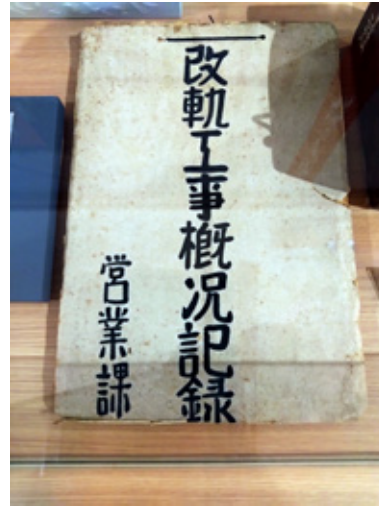 改軌工事概況記録
営業課